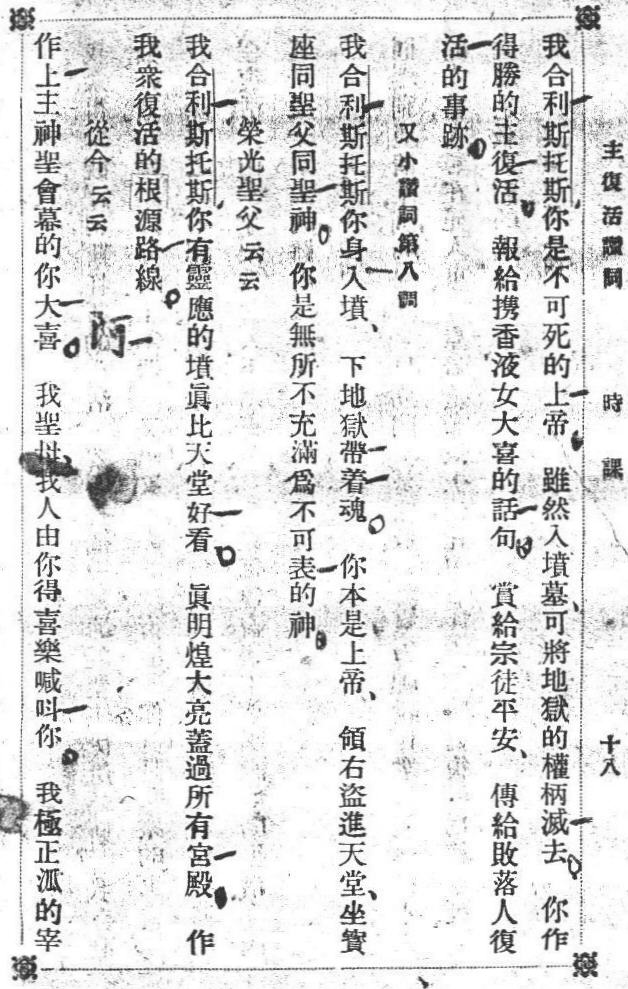 主復活讚詞 時課 十八
我合利斯托斯你是不可死的上帝 雖然入墳墓、可將地獄的權柄滅去。 你作
得勝的主復活。 報給携香液女大喜的話句。 賞給宗徒平安、 傳給敗落人復
活的事跡。
又小讚詞第八調
我合利斯托斯你身入墳、 下地獄帶着魂。 你本是上帝、 領右盜進天堂、坐寶
座同聖父同聖神。 你是無所不充滿爲不可表的神。
榮光聖父云云
我合利斯托斯你有靈應的墳眞比天堂好看。 眞明煌大亮蓋過所有宮殿。 作
我衆復活的根源路線。
從今云云 阿
作上主神聖會幕的你大喜。 我聖 我人由你得喜樂喊叫你。 我極正 的宰